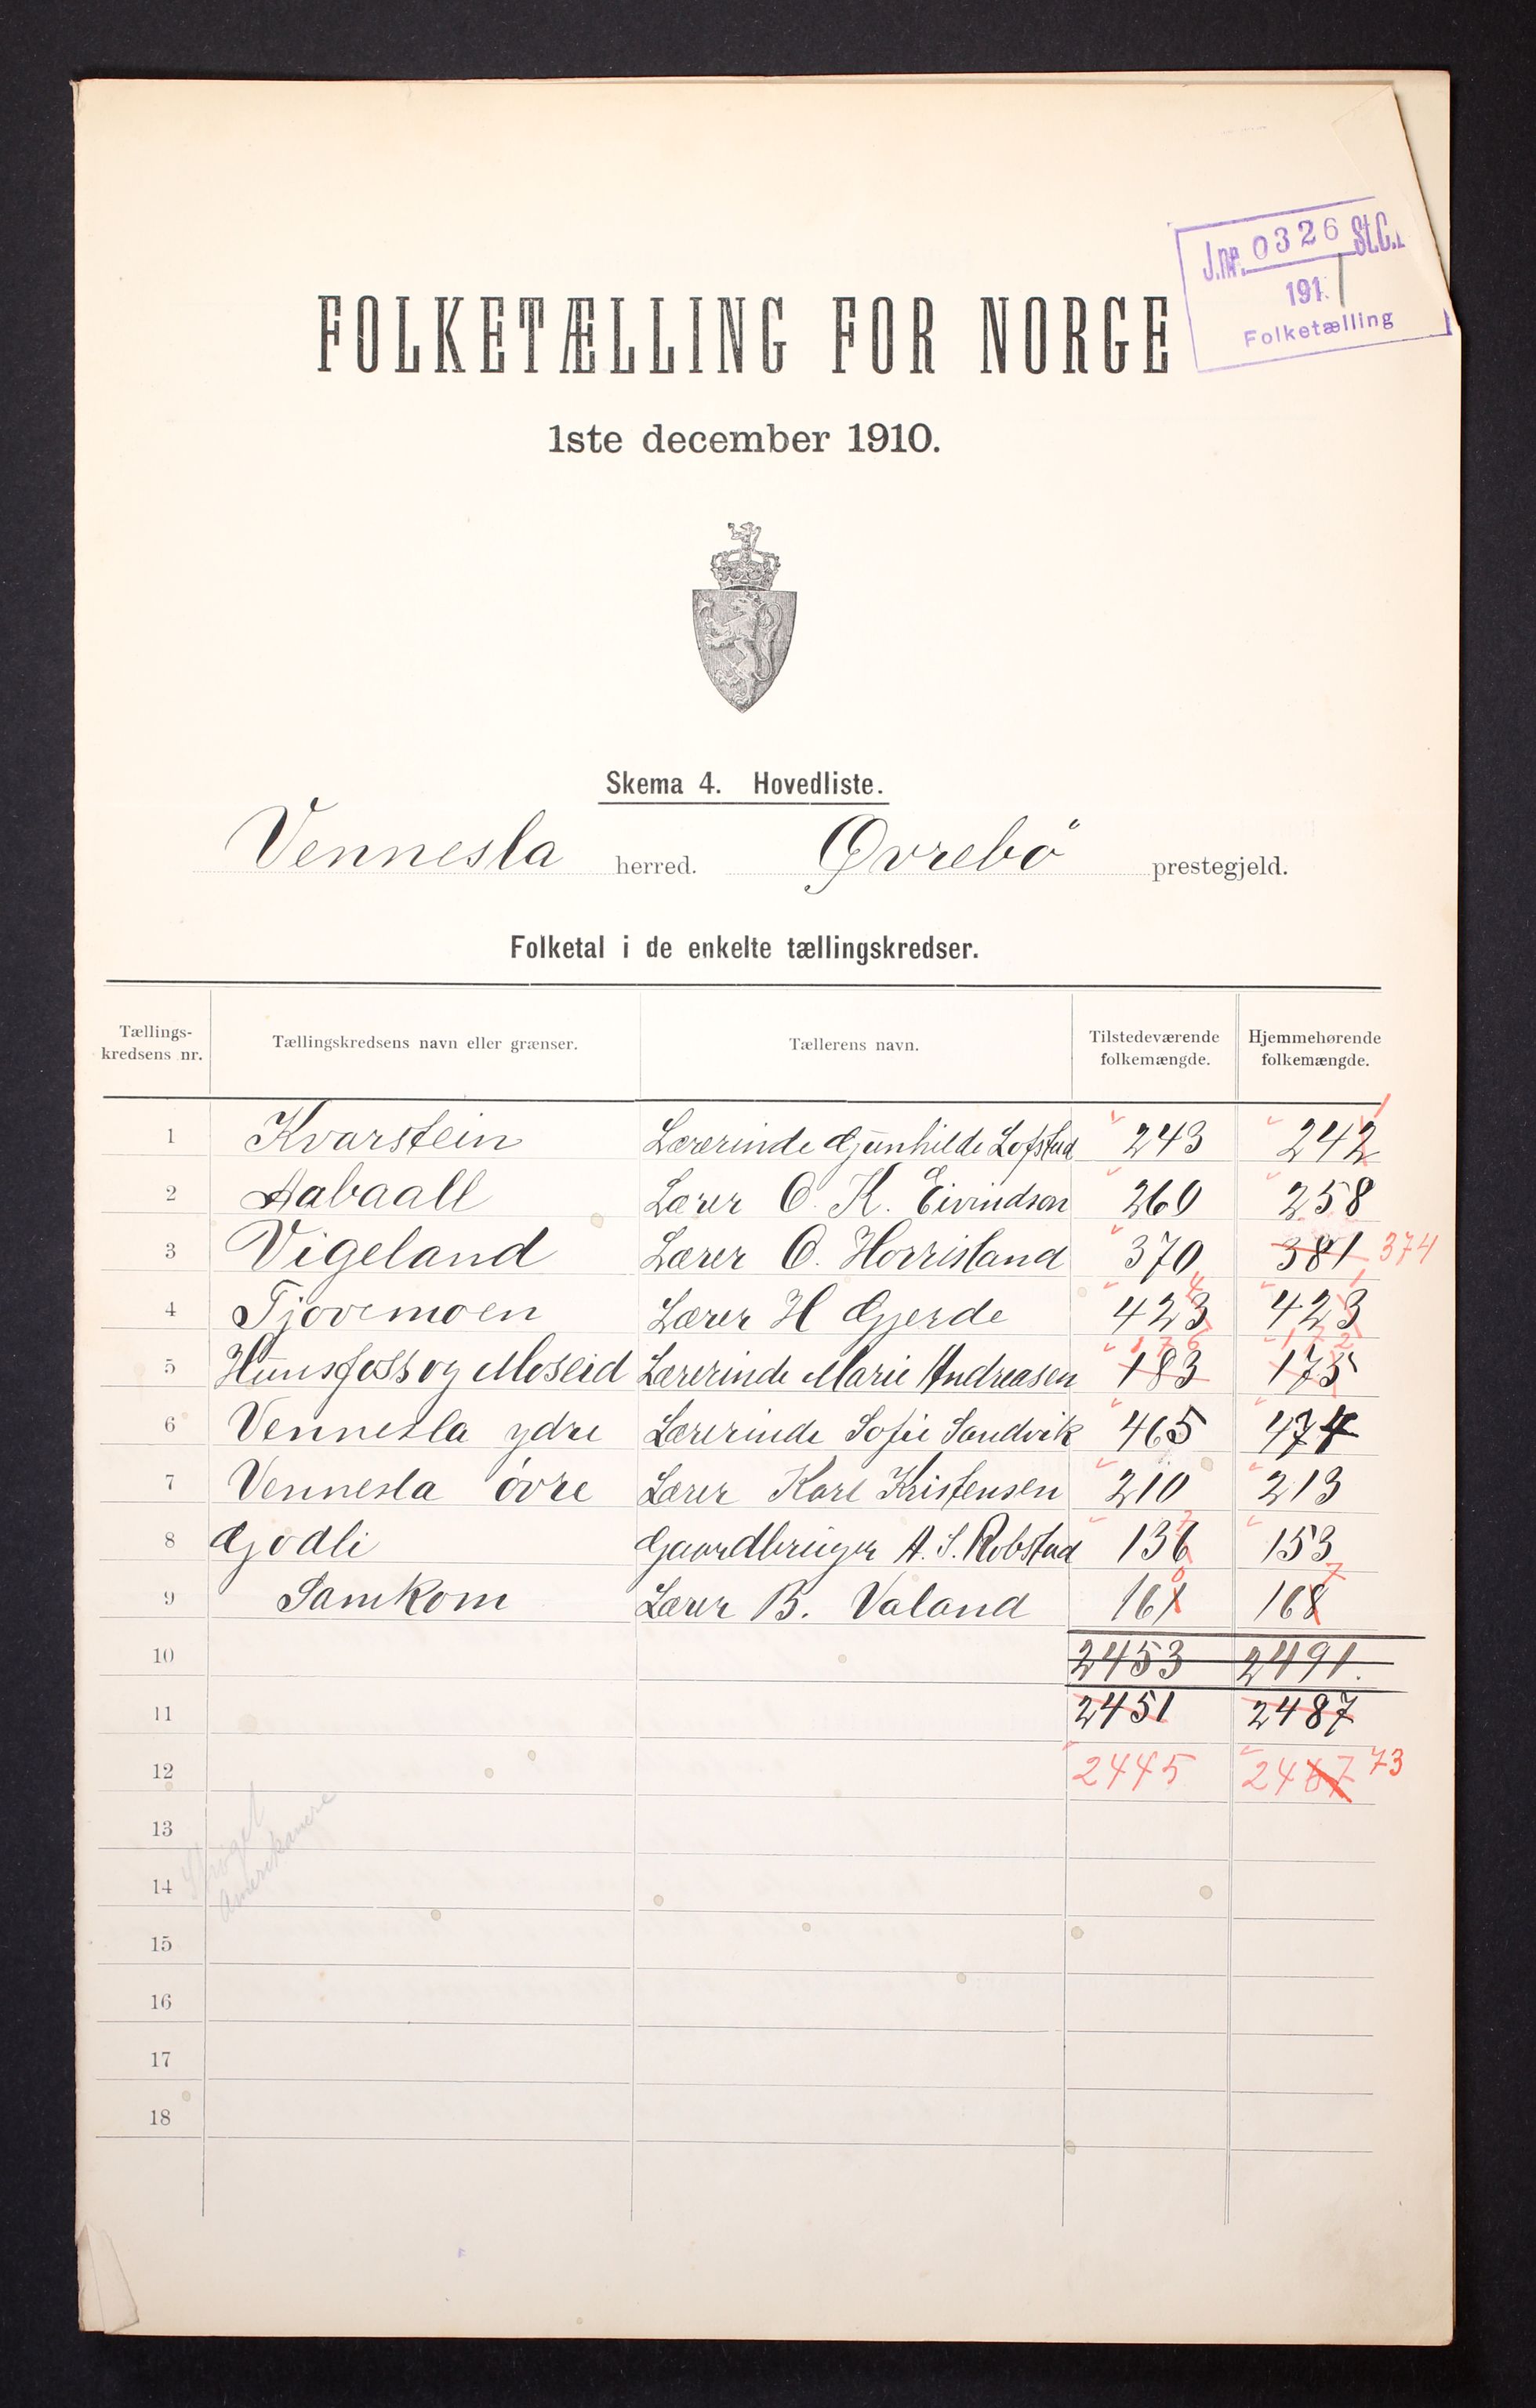 J.nr. 0326 St.C.
191
Folketælling
FOLKETÆLLING FOR NORGE
1ste december 1910.
Skema 4. Hovedliste.
Vennesla herred. Øvrebö prestegjeld.
Folketal i de enkelte tællingskredser.
Tællings-kredsens nr. Tællingskredsens navn eller grænser. Tællerens navn. Tilstedeværende folkemængde. Hjemmehørende folkemængde.
1 Kvarstein Lærerinde Gunhilde Lofstad 243 242 1
2 Aabaall Lærer O. K. Eivindson 260 258
3 Vigeland Lærer O. Horrisland 370 381 374
4 Tjovemoen Lærer H Gjerde 423 4 423 1
5 Hunsfoss og Moseid Lærerinde Marie Andreasen 183 176 175 172
6 Vennesla ydre Lærerinde Sofie Sandvik 465 474
7 Vennesla övre Lærer Karl Kristensen 210 213
8 Gjodli Gaardbruger A. S. Robstad 136 7 153
9 Samkom Lærer B. Valand 161 0 168 7
10 2453 2491.
11 2451 2487
12 2445 2467 73
13
14
Amerikanere
15
16
17
18